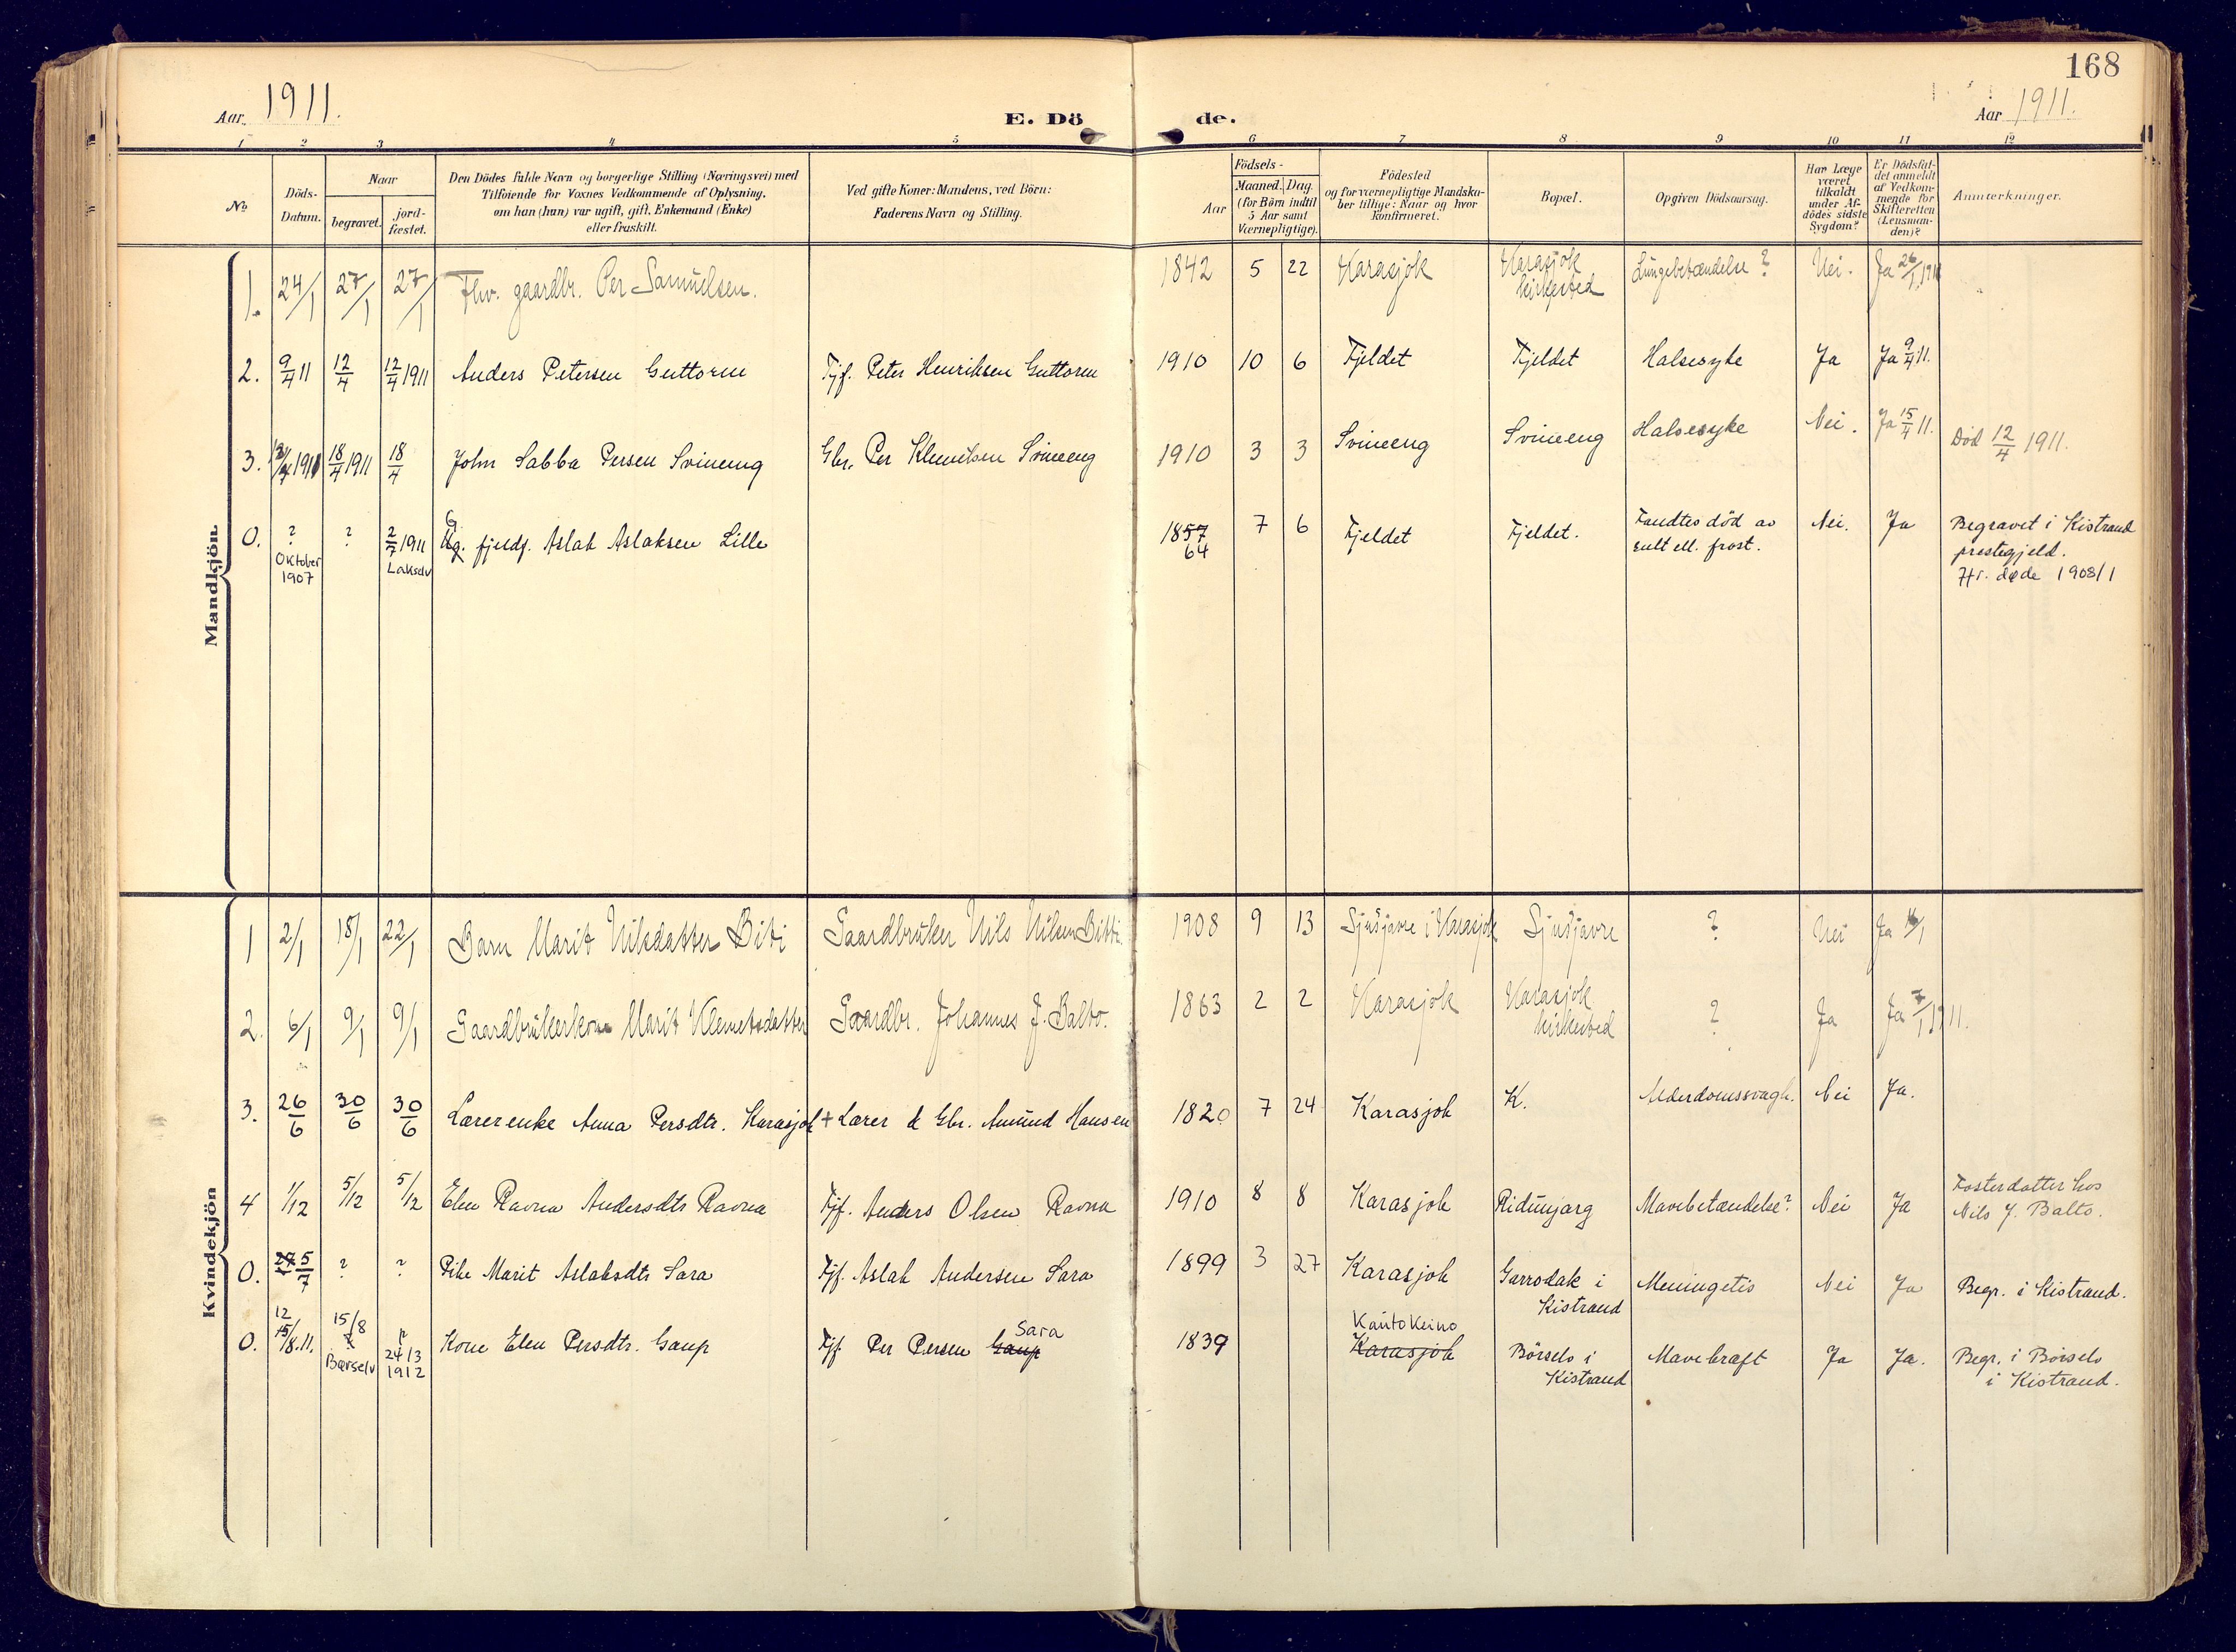 168
Aar. 1911.
E. Dö de.
Aar 1911.
1 2 3 4 5 6 7 8 9 10 11 12
No
Döds-Datum.
Naar
begravet.
jord-fæstet.
Den Dödes fulde Navn og borgerlige Stilling (Næringsvei) med
Tilföiende for Voxnes Vedkommende af Oplysning,
om han (hun) var ugift, gift, Enkemand (Enke)
eller fraskilt.
Ved gifte Koner: Mandens, ved Börn:
Faderens Navn og Stilling.
Födsels-
Aar
Maaned. Dag.
(for Börn indtil
5 Aar samt
Værnepligtige).
Födested
og for værnepligtige Mandska-
ber tillige: Naar og hvor
konfirmeret.
Bopæl.
Opgiven Dödsaarsag.
Har Læge
været
tilkaldt
under Af-
dödes sidste
Sygdom?
Er Dödsfal-
det anmeldt
af Vedkom-
mende for
Skifteretten
(Lensman-
den)?
Anmærkninger.
Mandkjön.
1. 24/1 27/1 27/1 Fhv. gaardbr. Per Samuelsen. 1842 5 22 Karasjok Karasjok kirkested Lungebetændelse? Nei. Ja 26/1 1911
2. 9/4 11 12/4 12/4 1911 Anders Petersen Guttorm Fjf. Peter Henriksen Guttorm 1910 10 6 Fjeldet Fjeldet Halsesyke Ja Ja 9/4 11.
3. 12/4 1911 18/4 1911 18/4 John Sabba Persen Svineng Gbr. Per Klemetsen Svineng 1910 3 3 Svineng Svineng Halsesyke Nei. Ja 15/4 11. Död 12/4 1911.
0. ? Oktober 1907 ? 2/7 1911 Lakselv Ug. fjeldf. Aslak Aslaksen Lille 1857 64 7 6 Fjeldet Fjeldet. Fandtes död av sult ell. frost. Nei. Ja Begravet i Kistrand
prestegjeld.
Jfr. døde 1908/1
Kvindekjön
1 2/1 18/1 22/1 Barn Marit Nilsdatter Biti Gaardbruker Nils Nilsen Bitti. 1908 9 13 Sjusjavre i Karasjok Sjusjavre ? Nei Ja
2. 6/1 9/1 9/1 Gaardbrukerkone Marit Klemetsdatter Gaardbr. Johannes J. Balto. 1863 2 2 Karasjok Karasjok kirkested ? Ja Ja 7/1 1911.
3. 26/6 30/6 30/6 Lærerenke Anna Persdtr. Karasjok + Lærer & Gbr. Amund Hansen 1820 7 24 Karasjok K. Alderdomssvagh. Nei Ja.
4 1/12 5/12 5/12 Elen Ravna Andersdtr Ravna Fjf. Anders Olsen Ravna 1910 8 8 Karasjok Ridunjarg Mavebetændelse? Nei Ja Fosterdatter hos
Nils J. Balto.
0. 27 5/7 ? ? Pike Marit Aslaksdtr Sara Fjf. Aslak Andersen Sara 1899 3 27 Karasjok Garrodak i Kistrand Meningetis Nei Ja Begr. i Kistrand.
0. 12 15/8.11. 15/8 ? Børselv 24/3 1912 Kone Elen Persdtr. Gaup Fjf Per Persen Gaup Sara 1839 Kautokeino Karasjok Börselv i Kistrand Mavekræft Ja Ja. Begr. i Börselv
i Kistrand.